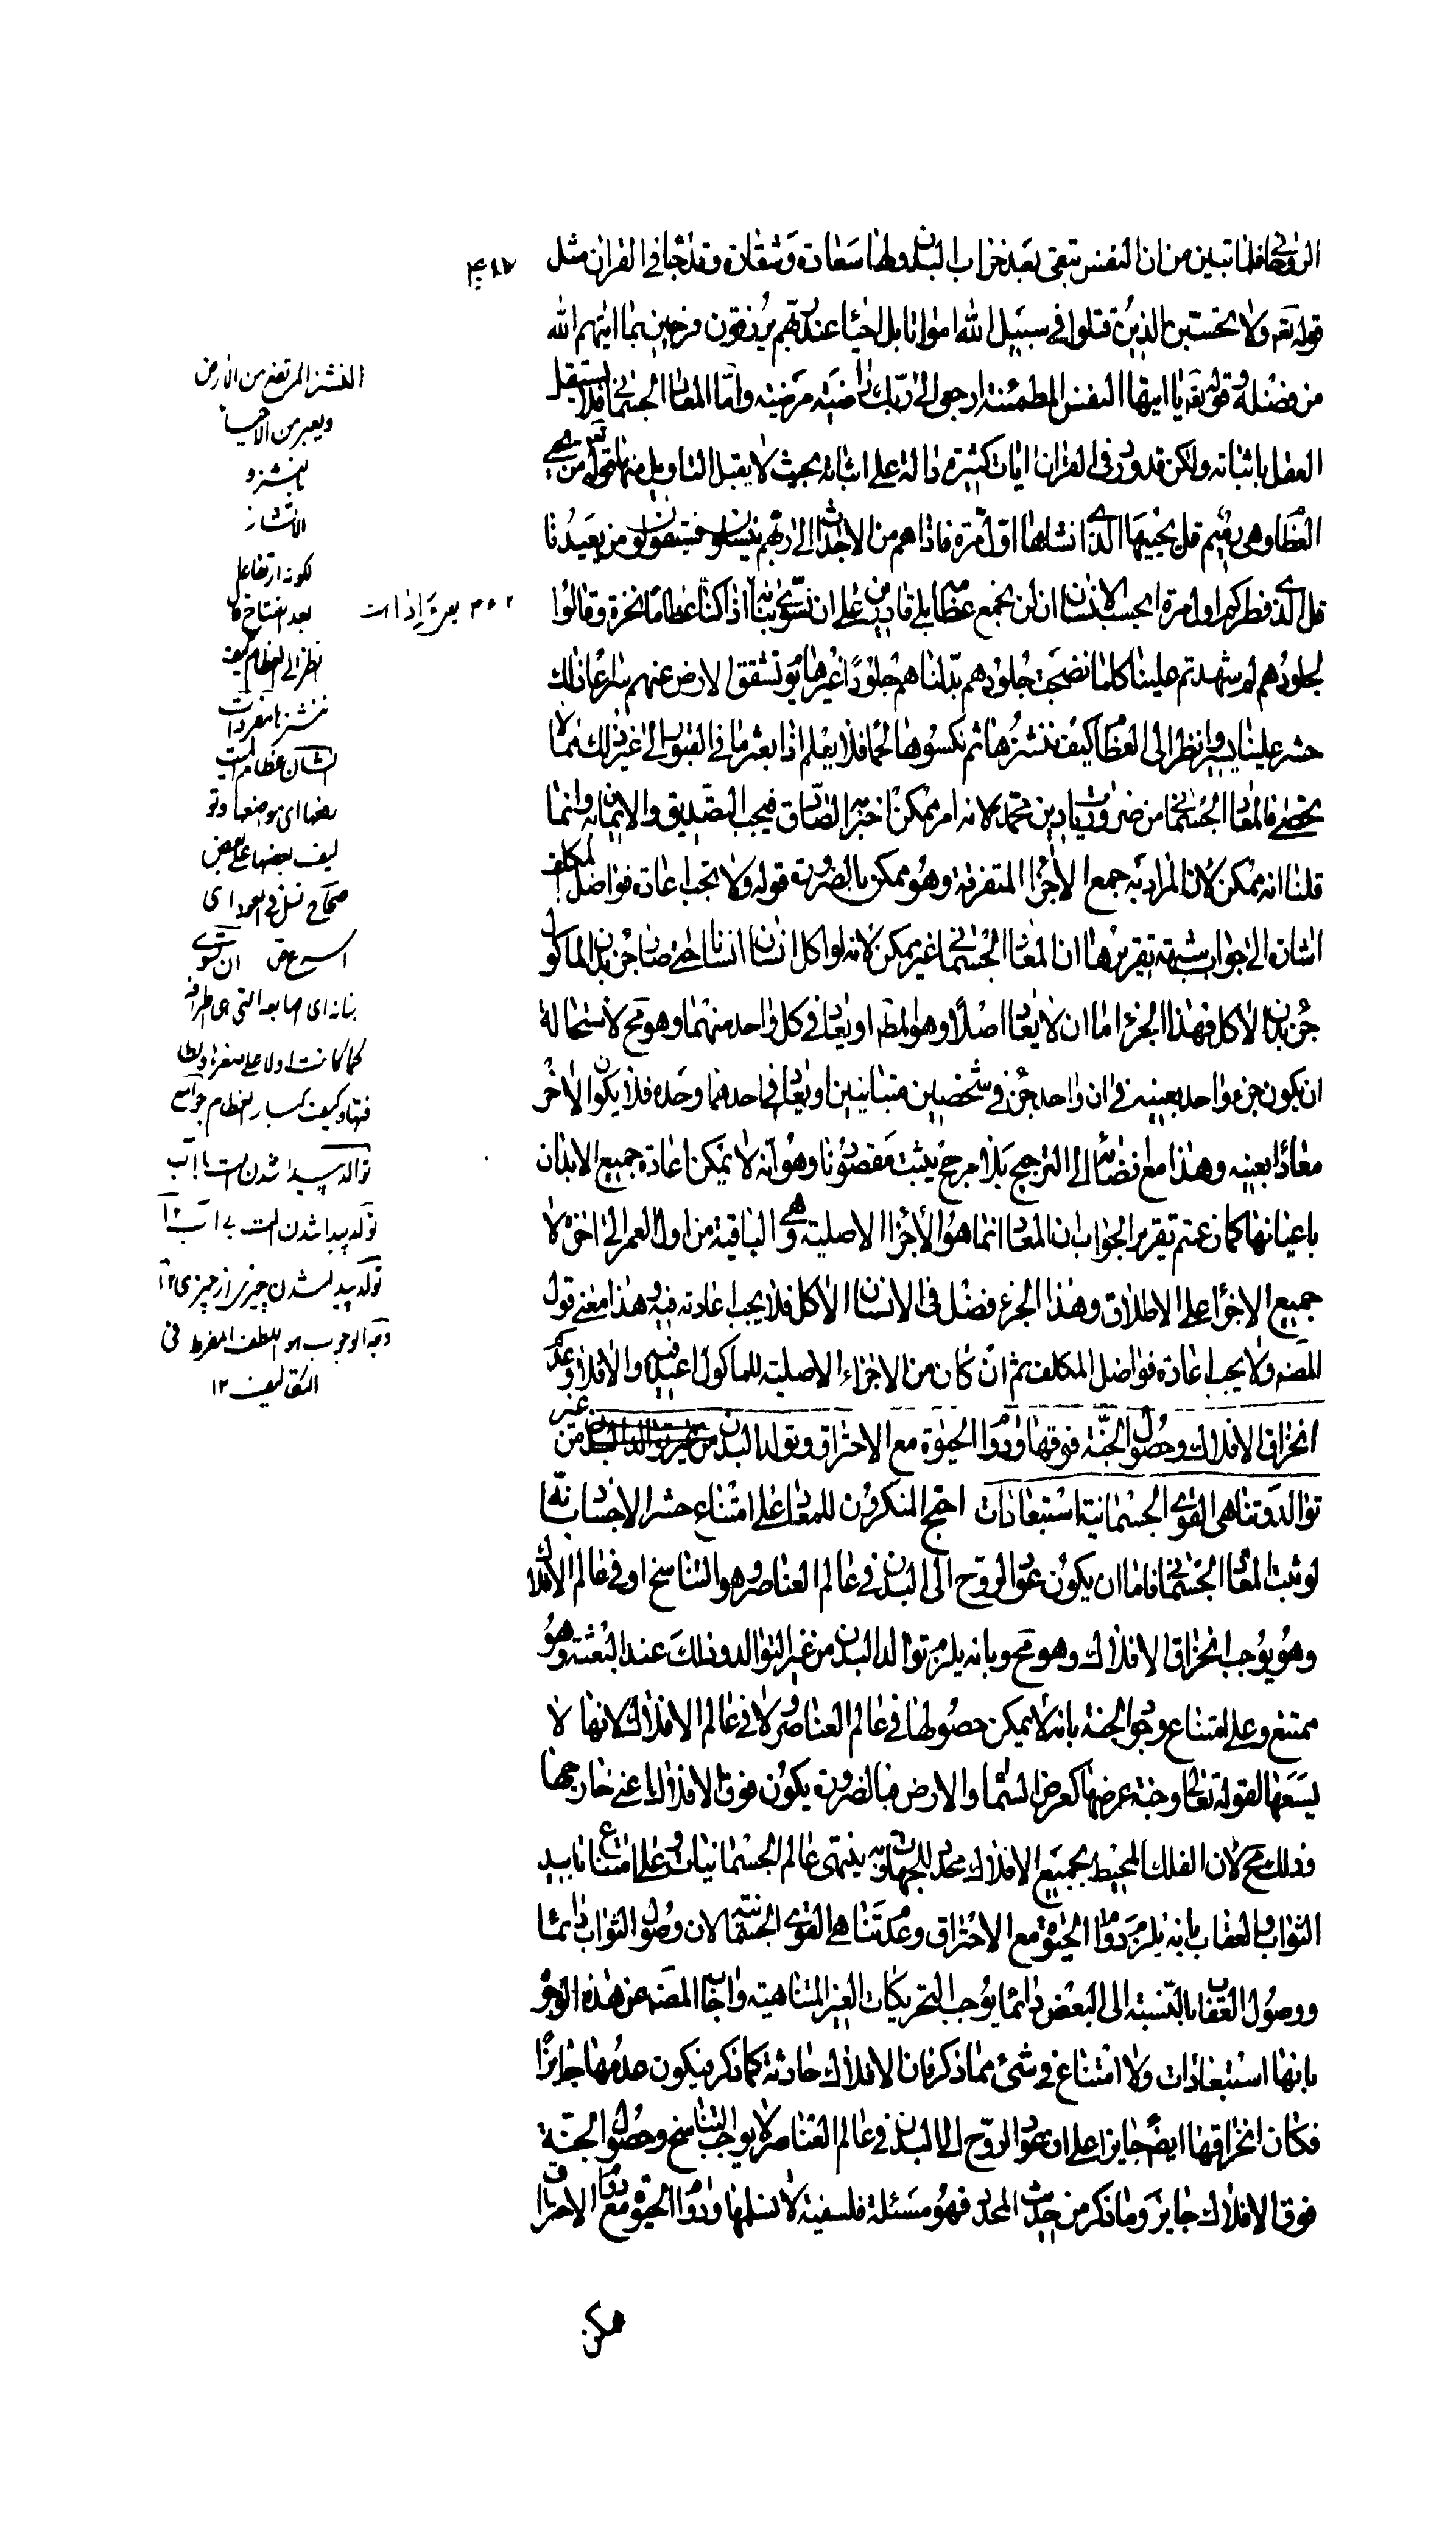 الروحانی فلما تبین من ان النفس تبقی بعد خراب البدن ولها سعادة وشقاوة وقد جاء فی القران مثل
قوله تعه ولا تحسبن الذین قتلوا فی سبیل الله امواتا بل احیاء عند ربهم یرزقون فرحین بما اتیهم الله
من فضله وقوله تعه یا ایتها النفس المطمئنة ارجعی الی ربك راضیة مرضیة واما المعاد الجسمانی فلا یستقل
العقل باثباته ولکن قد ورد فی القران ایات کثیرة دالة علی اثباته بحیث لا یقبل التاویل منها قوله تعه من یحیی
العظام وهی رمیم قل یحییها الذی انشاها اول مرة فاذا هم من الاجداث الی ربهم ینسلون فسیقولون من یعیدنا
قل الذی فطرکم اول مرة ایحسب الانسان ان لن نجمع عظامه بلی قادرین علی ان نسوی بنانه ااذا کنا عظاما نخرة وقالوا
لجلودهم لم شهدتم علینا کلما نضجت جلودهم بدلناهم جلودا غیرها یوم تشقق الارض عنهم سراعا ذلك
حشر علینا یسیر وانظر الی العظام کیف ننشزها ثم نکسوها لحما افلا یعلم اذا بعثر ما فی القبور الی غیر ذلك مما لا
یحصی فالمعاد الجسمانی من ضروریات دین محمد لانه امر ممکن اخبر به الصادق فیجب التصدیق والایمان به وانما
قلنا انه ممکن لان المراد به جمع الاجزاء المتفرقة وهو ممکن بالضرورة قوله ولا تجب اعادة فواضل المکلف
اشارة الی جواب شبهة تقریرها ان المعاد الجسمانی غیر ممکن لانه لو اکل انسان انسانا حتی صار جزء بدن الماکول
جزء بدن الاکل فهذا الجزء اما ان لا یعاد اصلا وهو المط او یعاد فی کل واحد منهما وهو مح لاستحالة
ان یکون جزء واحد بعینه فی ان واحد جزء فی شخصین متباینین او یعاد فی احدهما وحده فلا یکون الاخر
معادا بعینه وهذا مع افضائه الی الترجیح بلا مرجح یثبت مقصودنا وهو انه لا یمکن اعادة جمیع الابدان
باعیانها کما زعمتم تقریر الجواب ان المعاد انما هو الاجزاء الاصلیة وهی الباقیة من اول العمر الی اخره لا
جمیع الاجزاء علی الاطلاق وهذا الجزء فضل فی الانسان الاکل فلا یجب اعادته فیه وهذا معنی قول
المصنه ولا یجب اعادة فواضل المکلف ثم ان کان من الاجزاء الاصلیة للماکول اعید فیه والا فلا وعدم
انخراق الافلاك وحصول الجنة فوقها ودوام الحیوة مع الاحتراق وتولد البدن من غیر
توالد وتناهی القوی الجسمانیة استبعادات احتج المنکرون للمعاد علی امتناع حشر الاجساد بانه
لو ثبت المعاد الجسمانی فاما ان یکون عود الروح الی البدن فی عالم العناصر وهو التناسخ او فی عالم الافلاك
وهو یوجب انخراق الافلاك وهو مح وبانه یلزم توالد البدن من غیر التوالد وذلك عند البعثة وهو
ممتنع وعلی امتناع وجود الجنة بانه لا یمکن حصولها فی عالم العناصر ولا فی عالم الافلاك لانها لا
یسعها لقوله تعالی وجنة عرضها کعرض السماء والارض فبالضرورة یکون فوق الافلاك اعنی خارجها
وذلك مح لان الفلك المحیط بجمیع الافلاك محدد للجهات وبه ینتهی عالم الجسمانیات وعلی امتناع تابید
الثواب والعقاب بانه یلزم دوام الحیوة مع الاحتراق وعدم تناهی القوی الجسمانیة لان وصول الثواب دائما
ووصول العقاب بالنسبة الی البعض دائما یوجب التحریکات الغیر المتناهیة واجاب المصنه عن هذه الوجوه
بانها استبعادات ولا امتناع فی شیء مما ذکر فان الافلاك حادثة کما ذکر فیکون عدمها جایزا
فکان انخراقها ایضا جایزا علی ان عود الروح الی البدن فی عالم العناصر لا یوجب التناسخ وحصول الجنة
فوق الافلاك جایز وما ذکر من حدیث المحدد فهو مسئلة فلسفیة لا نسلمها ودوام الحیوة مع دوام الاحتراق
ممکن
النشز المرتفع من الارض
ویعبر من الاحیاء
بالنشز و
الانشاز
لکونه ارتفاعا
نظر الی العظام کیف
ننشزها
صحاح نسل فی العدو ای
اسرع
بنانه ای اصابعه التی هی اطرافه
کما کانت اولا علی صغرها
تولد پیدا شدن است
تولد پیدا شدن چیزی از چیزی ۱۲
وجه الوجوب هو اللطف المفرط فی
التکالیف ۱۲